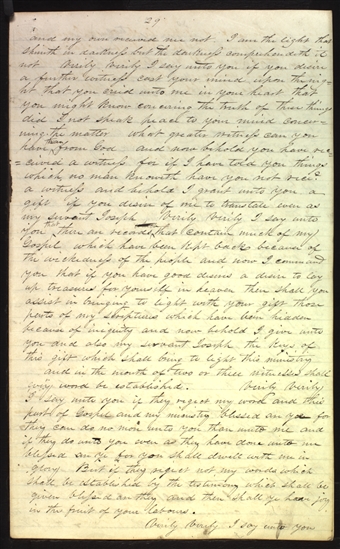 29
and my own received me not. I am the light that
shineth in darkness but the darkness comprehendeth it
not Verily Verily I say unto you if you desire
a further witness cast your mind upon the nig-
ht that you cried unto me in your heart that
you might know concerning the truth of these things
did I not speak peace to your mind concer-
ning the matter what greater witness can you
have than from God and now behold you have re-
ceived a witness for if I have told you things
which no man knoweth have you not
a witness and behold I grant unto you a
gift if you desire of me to translate even as
my servant Joseph Verily Verily I say unto
you that ther are records that contain much of my
Gospel which have been kept back because of
the wickedness of the people and now I command
you that if you have good desires a desire to lay
up treasures for yourself in heaven then shall you
assist in bringing to light with your gift those
parts of my scriptures which have been hidden
because of iniquity and now behold I give unto
you and also my servant Joseph the keys of
this gift which shall bring to light this ministry
and in the mouth of two or three witnesses shall
evry word be established. Verily Verily
I say unto you if they reject my word and this
part of Gospel and my ministry blessed are ye for
they can do no more unto you than unto me and
if they do unto you even as they have done unto me
blessed are ye for you shall dwell with me in
glory. But if they reject not my words which
shall be established by the testimony which shall be
given blessed are they and then shall ye have joy
in the fruit of your labours.
Verily Verily I say unto you